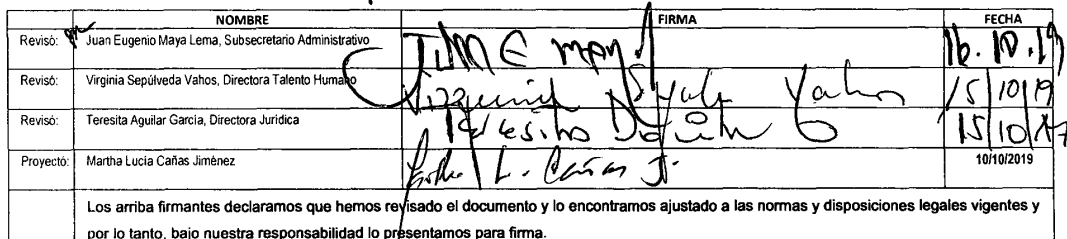 NOMBRE FIRMA FECHA
Revisó: Juan Eugenio Maya Lema, Subsecretario Administrativo 16.10.19
Revisó: Virginia Sepúlveda Vahos, Directora Talento Humano Virginia Vahos 15/10/19
Revisó: Teresita Aguilar García, Directora Jurídica Teresita Aguilar 15/10/
Proyectó: Martha Lucía Cañas Jiménez L. Cañas J. 10/10/2019
Los arriba firmantes declaramos que hemos revisado el documento y lo encontramos ajustado a las normas y disposiciones legales vigentes y
por lo tanto, bajo nuestra responsabilidad lo presentamos para firma.